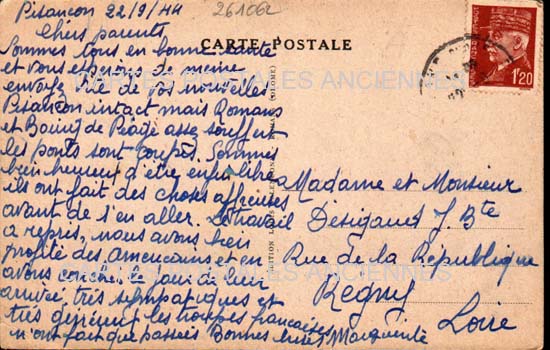 Pisançon 22/9/44
261062
Chers parents,
Sommes tous en bonne santé
et vous espérons de meme
envoyé vite de vos nouvelles
Pisançon intact mais Romans
et Bourg de Péage assez souffert
les ponts sont coupés. Sommes
bien heureux d'être enfin libre
ils ont fait des choses affreuses
avant de s'en aller. Le travail
a repris, nous avons bien
profité des americains et en
avons couché le jour de leur
arrivée très sympatiques et
très différent les troupes francaises
n'ont fait que passer Bonnes bises Marguerite
CARTE POSTALE
CARTES POSTALES ANCIENNES
1F20
Madame et Monsieur
J. Bte
Rue de la République
Regny
Loire
CARTES POSTALES ANCIENNES